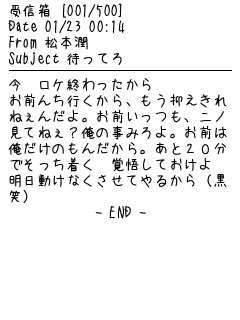 受信箱 [001/500]
Date 01/23 00:14
From 松本潤
Subject 待ってろ
今　ロケ終わったから
お前んち行くから、もう抑えきれ
ねぇんだよ。お前いっつも、ニノ
見てねぇ？俺の事みろよ。お前は
俺だけのもんだから。あと２０分
でそっち着く　覚悟しておけよ
明日動けなくさせてやるから（黒
笑）
- END -